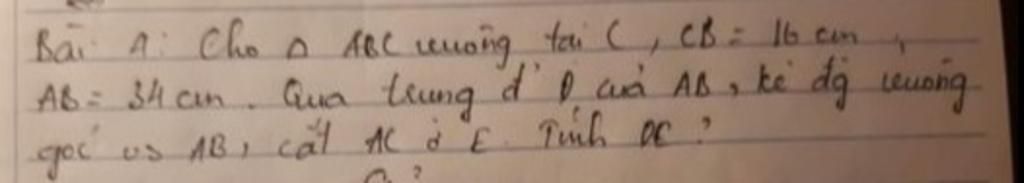 Bài A: Cho Δ ABC vuông tại C, CB = 16 cm,
AB = 34 cm. Qua trung đ' D của AB, kẻ đg vuông
góc vs AB, cắt AC ở E. Tính DE?